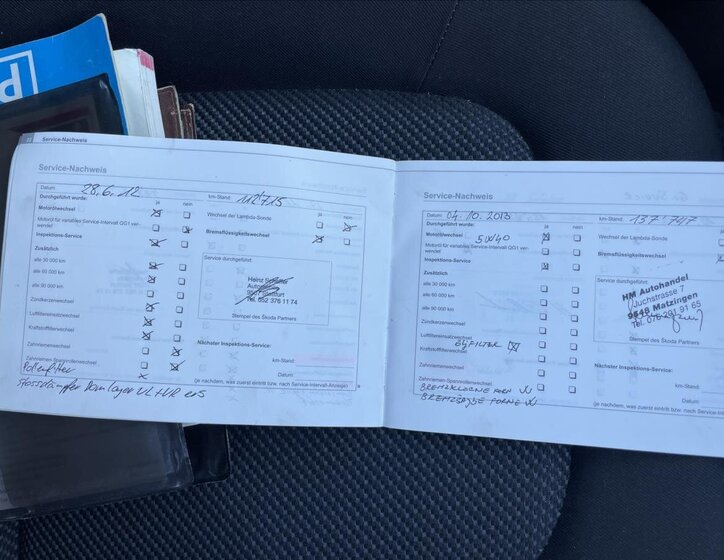 Service-Nachweis
Service-Nachweis
Datum 28.6.12 km-Stand 112'715
Durchgeführt wurde: ja nein ja nein
Motorölwechsel Wechsel der Lambda-Sonde
Motoröl für variables Service-Intervall QG1 ver-
wendet Bremsflüssigkeitswechsel
Inspektions-Service
Zusätzlich Service durchgeführt:
alle 30 000 km Heinz
alle 60 000 km
alle 90 000 km Tel. 052 376 11 74
Zündkerzenwechsel
Luftfiltereinsatzwechsel Stempel des Škoda Partners
Kraftstofffilterwechsel
Zahnriemenwechsel Nächster Inspektions-Service:
km-Stand
Zahnriemen-Spannrollenwechsel Datum
Pollenfilter (je nachdem, was zuerst eintritt bzw. nach Service-Intervall-Anzeige)
Stossdämpfer Domlager VL+VR ers
Service-Nachweis
Datum 04.10.2013 km-Stand 137'747
Durchgeführt wurde: ja nein
Motorölwechsel 5W40 Wechsel der Lambda-Sonde
Motoröl für variables Service-Intervall QG1 ver-
wendet Bremsflüssigkeitswechsel
Inspektions-Service
Zusätzlich Service durchgeführt:
alle 30 000 km HM Autohandel
alle 60 000 km Juchstrasse 7
alle 90 000 km 9548 Matzingen
Zündkerzenwechsel Tel. 076 291 91 65
Luftfiltereinsatzwechsel Stempel des Škoda Partners
Kraftstofffilterwechsel
Zahnriemenwechsel Nächster Inspektions-Service:
km-Stand
Zahnriemen-Spannrollenwechsel Datum
(je nachdem, was zuerst eintritt bzw. nach Service-Inter